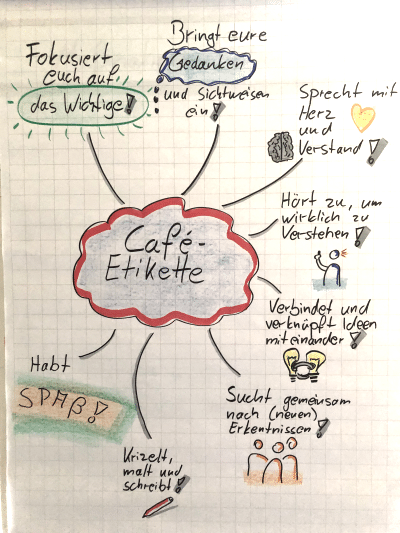 Fokusiert
euch auf
das Wichtige!
Bringt eure
Gedanken
und Sichtweisen
ein!
Sprecht mit
Herz
und
Verstand!
Hört zu, um
wirklich zu
Verstehen!
Café-
Etikette
Verbindet und
verknüpft Ideen
miteinander!
Sucht gemeinsam
nach (neuen)
Erkentnissen!
Krizelt,
malt und
schreibt!
Habt
SPAß!